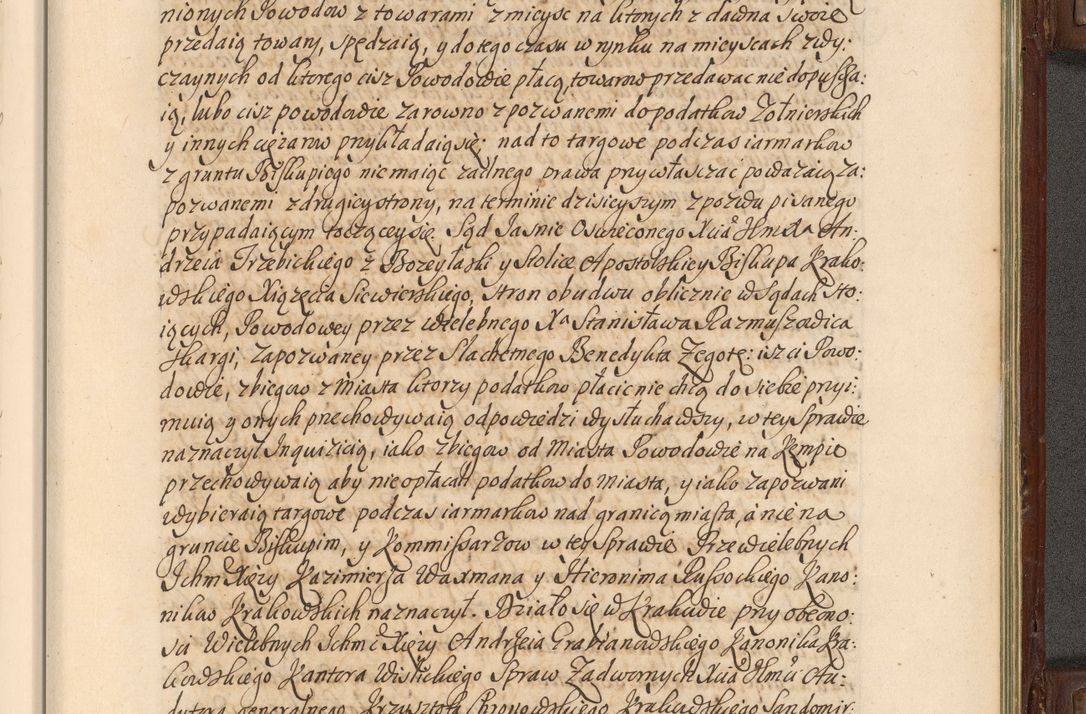 nionych Powodow z towarami z mieysc na ktorych z dawna swoie
przedaią towary, spędzaią, y do tego czasu w rynku na mieyscach zwy:
czaynych od ktorego cisz Powodowie płacą, towarow przedawac nie dopuszcza:
ią, lubo cisz powodowie zarowno z pozwanemi do podatkow Zołnierskich
y innych cięzarow przykładaią się; nad to targowe podczas iarmarkow
z gruntu Biskupiego nie maiąc zadnego prawa przywłaszczać powazaią za:
pozwanemi z drugiey strony, na terminie dzisieyszym z pozwu pisanego
przypadaiącym toczącey się. Sąd Jasnie Oswieconego Xcia Jhmsci Xa An:
drzeia Trzebickiego z Bozey łaski y Stolice Apostolskiey Biskupa Krako:
wskiego Xiązęcia Siewierskiego, Stron obudwu oblicznie w Sądach sto:
iących, Powodowey przez Wielebnego Xa Stanisława Razmuszowica
Skargi, zapozwaney przez Slachetnego Benedykta Zegotę: isz ci Powo:
dowie, zbiegow z Miasta ktorzy podatkow płacic nie chcą do siebie przyi:
muią y onych przechowywaią odpowiedzi wysłuchawszy, w tey Sprawie
naznaczył Inquizicią, iako zbiegow od Miasta Powodowie na Kempie
przechowywaią aby nie opłacali podatkow do Miasta, y iako zapozwani
wybieraią targowe podczas iarmarkow nad granicą miasta, a nie na
gruncie Biskupim, y Kommissarzow w tey Sprawie Przewielebnych
Ichm Xięzy Kazimierza Waxmana y Hieronima Russockiego Kano:
nikow Krakowskich naznaczył. Działo się w Krakowie przy obecno:
sci Wielebnych Ichmc Xięzy Andrzeia Grabianowskiego Kanonika Kra:
kowskiego Kantora Wislickiego Spraw Zadwornych Xcia Jhmci Au:
dytora generalnego Krzysztofa Chronowskiego Krakowskiego Sandomir: